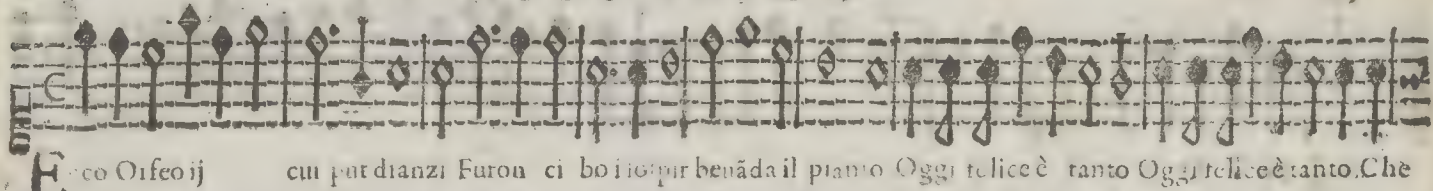 Ecco Orfeo ij cui pur dianzi Furon cibo i sospir bevāda il pianto Oggi felice è tanto Oggi felice è tanto. Che